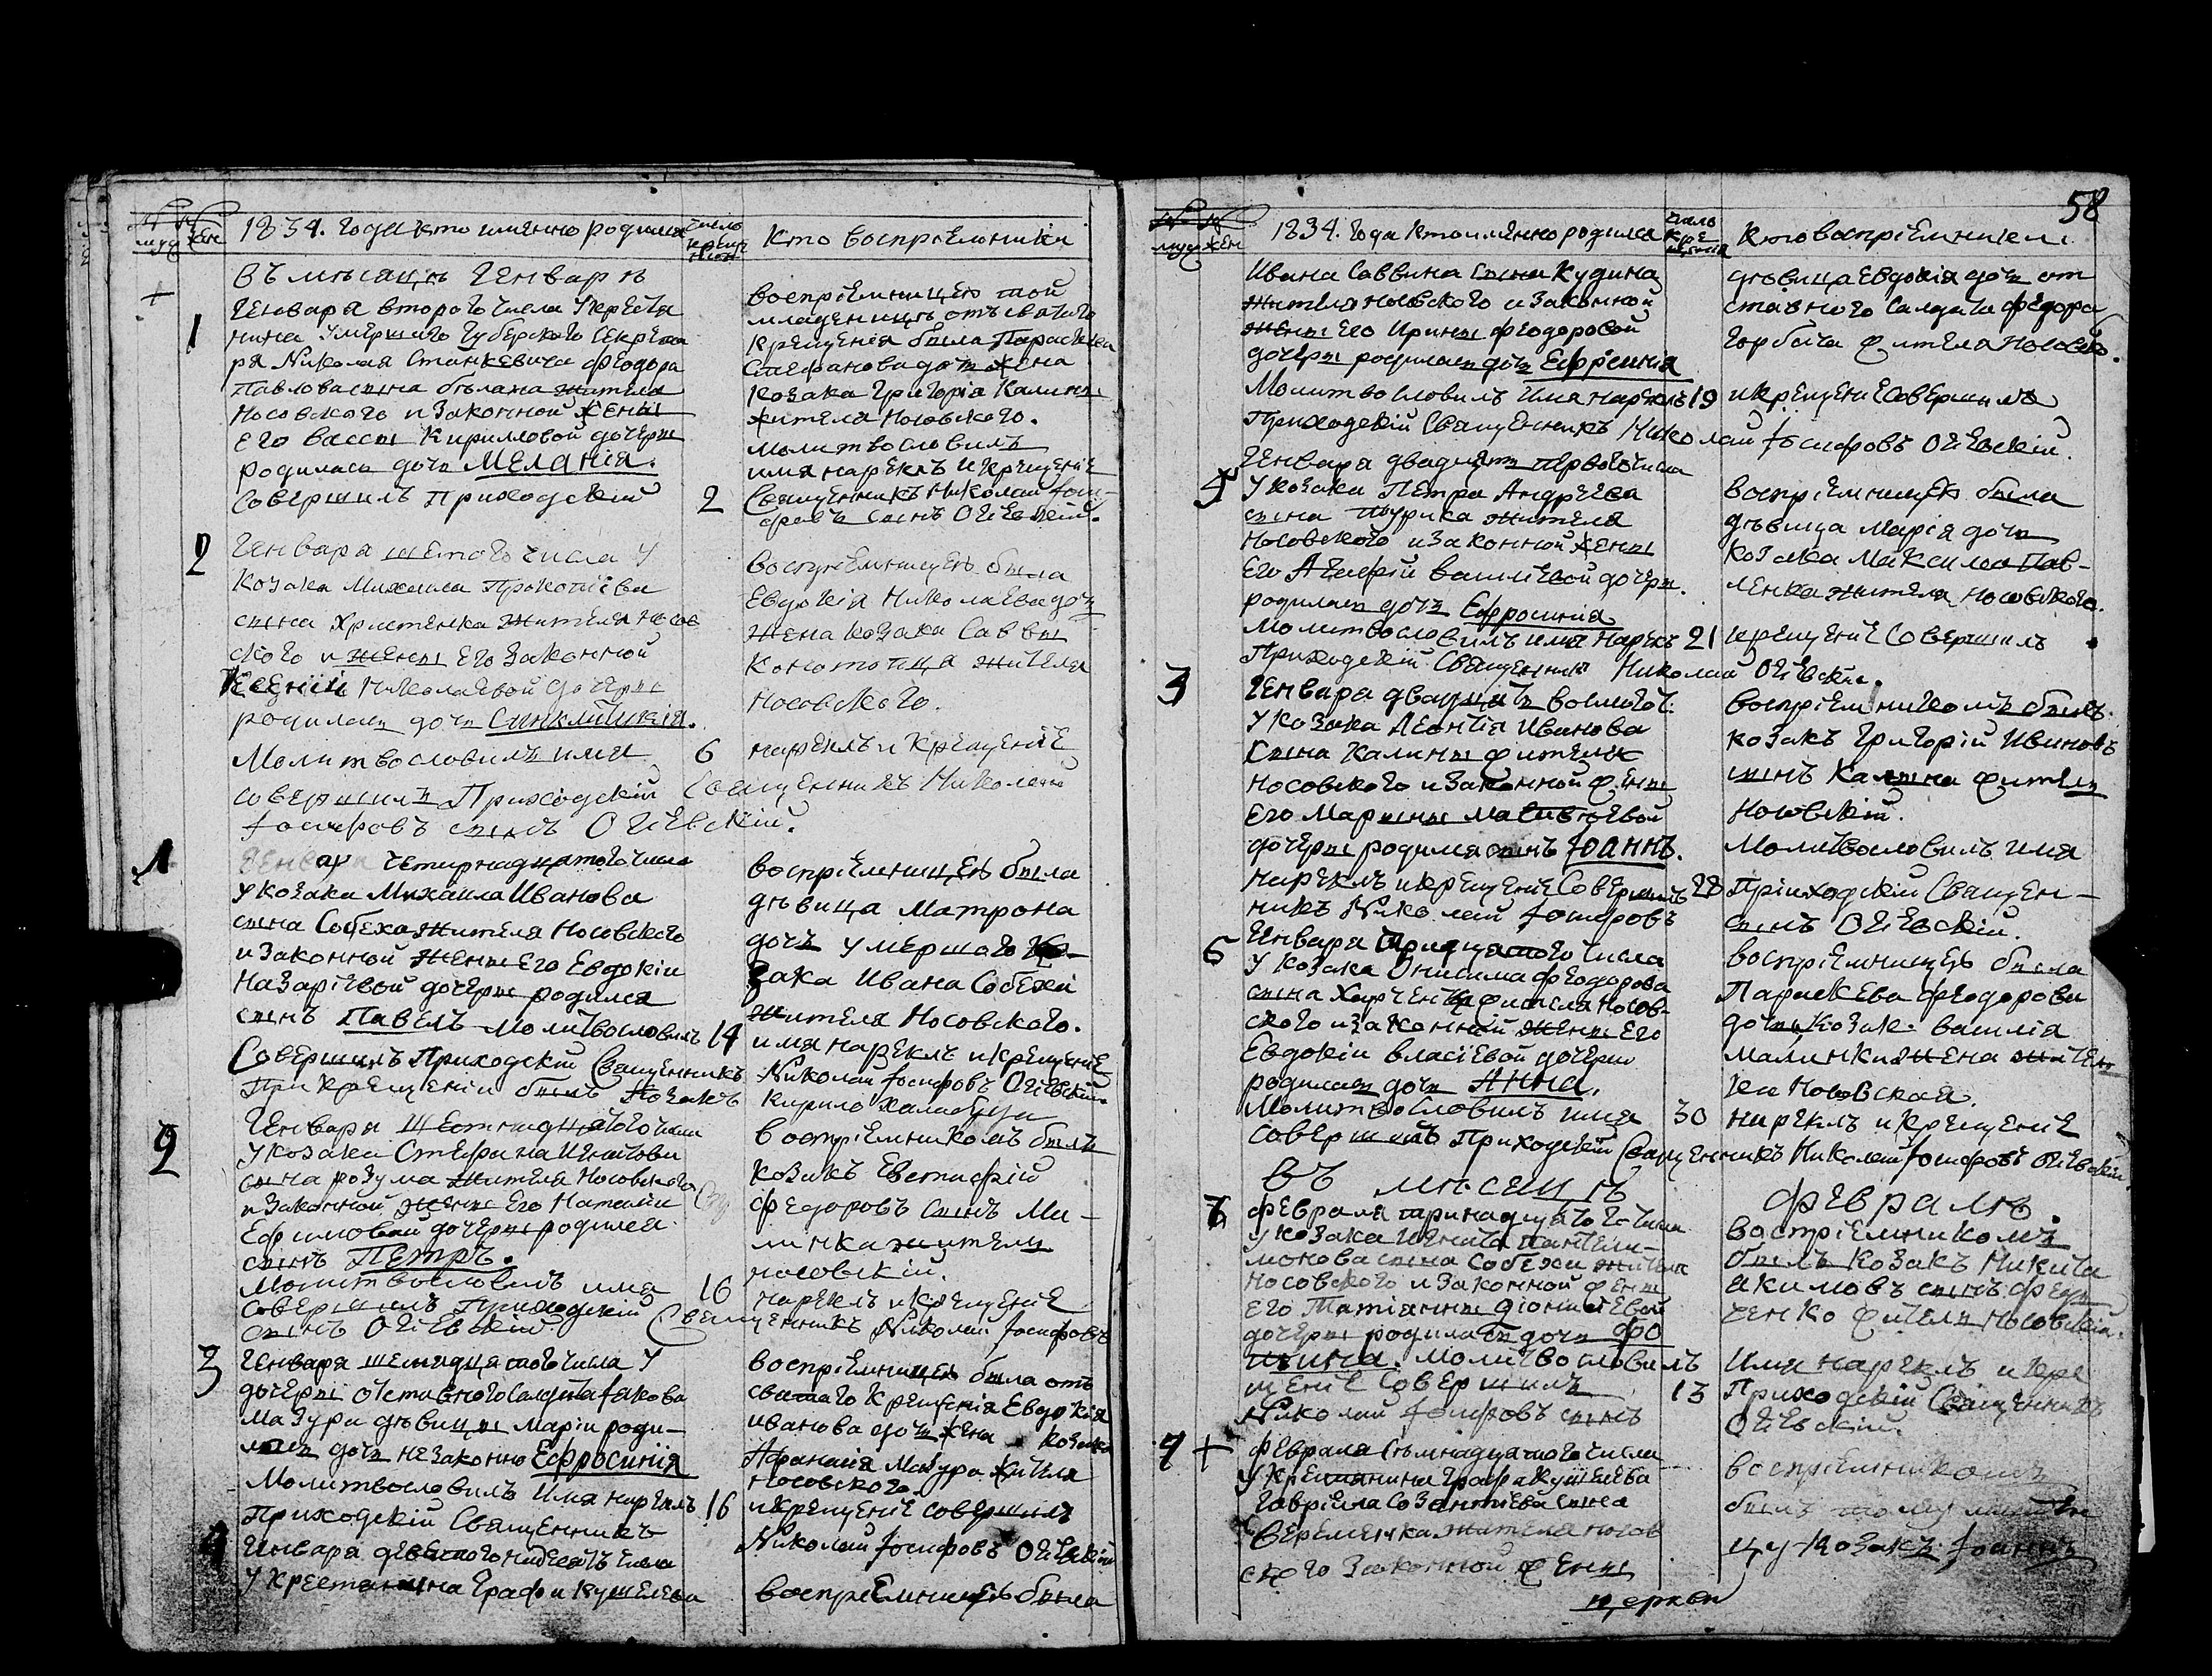 № №
муж жен
1834. Года кто именно родился
число креще нія
Кто воспріемники
Въ мѣсяцѣ Генварѣ
+
1
Генваря второго числа У крестья
нина Умершаго Губерского Секрета
ря Николая Станкевича Феодора
Павлова сына бѣлана жителя
Носовского и Законной жены
Его Вассы Кирилловой дочеры
родилась дочь Меланія.
Совершилъ Приходскій
2
воспріемницею той
младеницѣ отъ святого
крещенія была Параскева
Стефанова дочь жена
Козака Григорія Калины
жителя Носовского.
молитвословилъ
имя нареклъ и крещеніе
Священникъ Николай Іоси-
фовъ сынъ Огіевскій.
2
Генваря шестого числа У
Козака Михаила Прокопіева
сына Христенка жителя Носов
ского и жены Его Законной
Ксеніи Николаевой дочеры
родилась дочь Синклитикія.
Молитвословилъ имя
6
совершилъ Приходскій Священникъ Николай
Іосифовъ сынъ Огіевскій.
воспріемницею была
Евдокія Николаева дочь
Жена козака Саввы
Конотопца жителя
Носовского.
нареклъ и Крещеніе
1
Генваря четирнадцатого числа
У козака Михаила Иванова
сына Собеха жителя Носовского
и Законной Жены Его Евдокіи
Назаріевой дочеры родился
сынъ Павелъ Молитвословилъ
14
Совершилъ Приходскій Священникъ
При крещеніи былъ Козакъ
воспріемницею была
дѣвица Матрона
дочь умершого Ко-
зака Ивана Собехи
Жителя Носовского.
имя нареклъ и крещеніе
Николай Іосифовъ Огіевскій
Кирило Халабуда
2
Генваря Шестнадцатого числа
У козака Стефана Игнатова
сына розума жителя Носовского
и Законной Жены Его Наталіи
Ефимовой дочеры родился
сынъ Петръ.
Молитвословилъ имя
16
совершилъ Приходскій Священникъ Николай Іосифовъ
сынъ Огіевскій.
воспріемникомъ былъ
Козакъ Евстафій
Федоровъ Сынъ Ма-
линка жителъ
носовскій.
нареклъ и крещеніе
3
Генваря шеснадцатого числа У
дочеры отставного Салдата Іякова
Мазура дѣвицы Маріи роди-
лась дочь незаконно Ефросинія
Молитвословилъ имя нареклъ
16
Приходскій Священникъ
воспріемницею была отъ
святаго Крещенія Евдокія
иванова дочь жена козака
Афанасія Мазура жителя
Носовского.
и крещеніе совершилъ
Николай Іосифовъ Огіевскій
4
Генваря девятогонадесять числа
У Крестянина Графа Кушелева
воспріемницею была
58
№ №
муж жен
1834. Года кто именно родился
число Кре щенія
Кто воспріемники
Ивана Саввина сына Кудина
жителя носовского и Законной
жены Его Ирины Феодоровой
дочеры родилась дочь Ефросинія
Молитвословилъ Имя нареклъ
19
Приходскій Священникъ Николай Іосифовъ Огіевскій.
дѣвица Евдокія дочь от
ставного Салдата Федора
Горбача жителя Носовско.
и крещеніе совершилъ
5
Генваря двадцять Первого числа
У козака Петра Андреева
сына Турика жителя
Носовского и Законной жены
Его Агафіи Василіевой дочеры.
родилась дочь Ефросинія
Молитвословилъ имя Нарекъ
21
Приходскій Священникъ Николай Огіевскій.
воспріемницею была
дѣвица Марія дочь
Козака Максима Пав-
ленка жителя Носовского.
крещеніе Совершилъ
3
Генваря двадцять восмого ч.
У козака Леонтія Иванова
Сына Калины жителя
носовского и Законной жены
Его Марины Матвѣевой
дочеры родился сынъ Іоаннъ.
нареклъ и крещеніе Совершилъ
28
никъ Николай Іосифовъ
воспріемникомъ былъ
козакъ Григорій Ивановъ
сынъ Калина житель
Носовскій.
Молитвословилъ имя
Приходскій Священ-
сынъ Огіевскій.
6
Генваря Тридцятого числа
У козака Онисима Феодорова
сына Харченка жителя Носов-
ского и законной жены Его
Евдокіи Власіевой дочеры
родилась дочь Анна.
Молитвословилъ имя
30
совершилъ Приходскій Священникъ Николай Іосифовъ Огіевскій.
воспріемницею была
Параскева Феодорова
дочь Козака Василія
Малинки Жена жител
ка Носовская.
нареклъ и крещеніе
Въ мѣсяцѣ
Февралѣ.
7
Февраля тринадцятого числа
У козака Игната Пантели-
монова сына Собехи жителя
Носовского и Законной жены
Его Татіянны Діонисіевой
дочеры родилась дочь Фо
тина. Молитвословилъ
щеніе Совершилъ
13
Николай Іосифовъ сынъ
воспріемникомъ
былъ Козакъ Никита
Акимовъ сынъ Фед
ченко житель Носовскій.
Имя нареклъ и кре
Приходскій Священникъ
Огіевскій.
4 +
Февраля Семнадцятого числа
У Крестянина Графа Кушелева
Гавріила Созонтіева сына
Веременка жителя носов
ского Законной жены
воспріемникомъ
былъ тому младен
цу Козакъ Іоаннъ
церкви